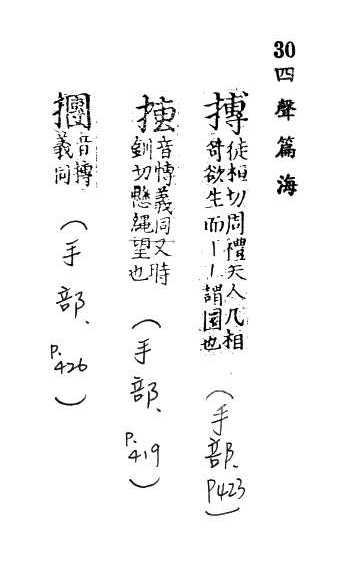 30四聲篇海
摶徒桓切周禮矢人凡相
笴欲生而丨丨謂圓也
(手部、P423)
音摶義同又時
釧切懸繩望也
(手部、P.419)
音摶
義同
(手部、P.426)